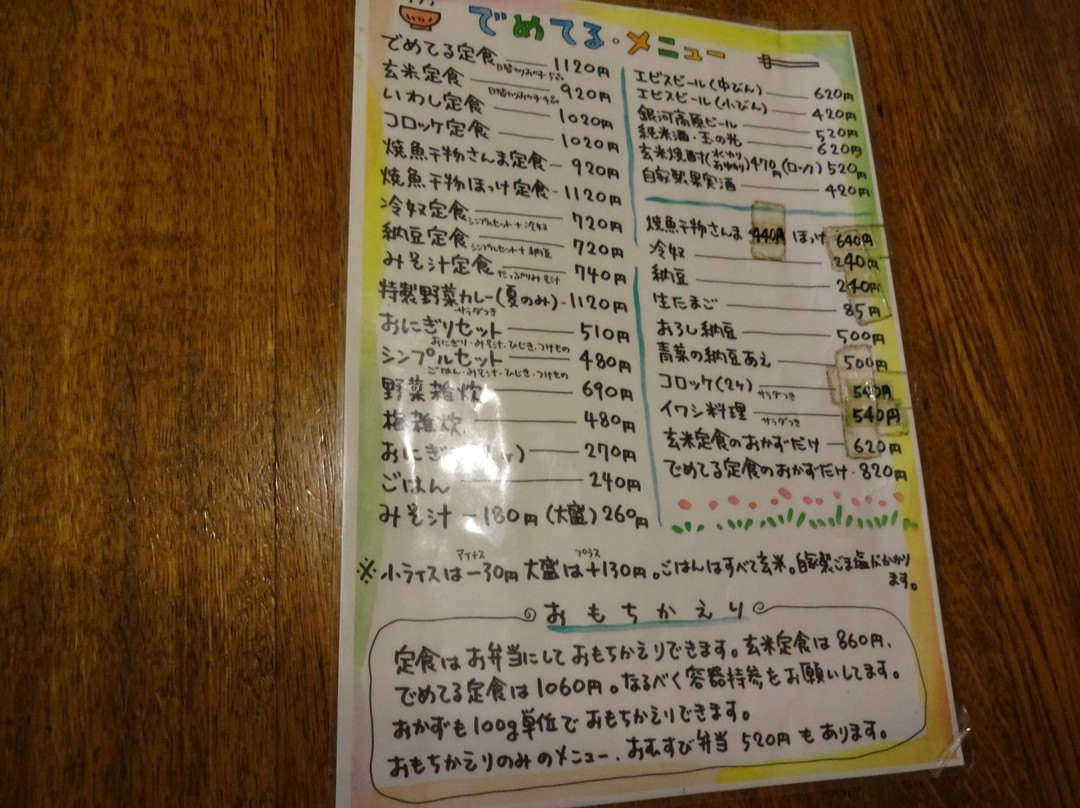 でめてる・メニュー
でめてる定食 1120円
日替わりおかず5品
玄米定食 920円
日替わりおかず4品
いわし定食 1020円
コロッケ定食 1020円
焼魚干物さんま定食 920円
焼魚干物ほっけ定食 1120円
冷奴定食 720円
シンプルセット+冷奴
納豆定食 720円
シンプルセット+納豆
みそ汁定食 740円
たっぷりみそ汁
特製野菜カレー(夏のみ) 1120円
サラダつき
おにぎりセット 510円
おにぎり・みそ汁・ひじき・つけもの
シンプルセット 480円
ごはん・みそ汁・ひじき・つけもの
野菜雑炊 690円
梅雑炊 480円
おにぎ ヶ) 270円
ごはん 240円
みそ汁 180円 (大盛) 260円
エビスビール(中びん) 620円
エビスビール(小びん) 420円
銀河高原ビール 520円
純米酒・玉の光 620円
玄米焼酎(水わり おゆわり) 470円 (ロック) 520円
自家製果実酒 420円
焼魚干物さんま 440円 ほっけ 640円
冷奴 240円
納豆 240円
生たまご 85円
おろし納豆 500円
青菜の納豆あえ 500円
コロッケ(2ヶ) 540円
サラダつき
イワシ料理 540円
サラダつき
玄米定食のおかずだけ 620円
でめてる定食のおかずだけ 820円
マイナス プラス
※小ライスは-30円 大盛は+130円。ごはんはすべて玄米。自家製ごま塩がかかり
ます。
おもちかえり
定食はお弁当にしておもちかえりできます。玄米定食は860円、
でめてる定食は1060円。なるべく容器持参をお願いしてます。
おかずも100g単位でおもちかえりできます。
おもちかえりのみのメニュー、おむすび弁当 520円もあります。